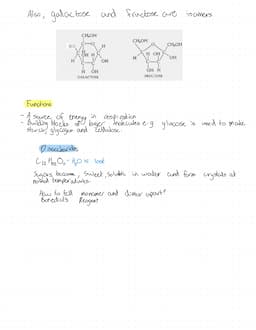 Also, galactose and fructose are isomers
CH₂OH
HO
H
OH H
H
OH
H OH
GALACTOSE
CH₂OH
CH₂OH
H OH
OH
OH H
FRUCTOSE
Functions
- A source of energy in respiration
- Building blocks of larger molecules e.g. glucose is used to make
starch, glycogen and cellulose.
Disaccharides
Sugars become, sweet, soluble in water and form crystals at
How to tell monomer and dimer apart?
Benedict's Reagent